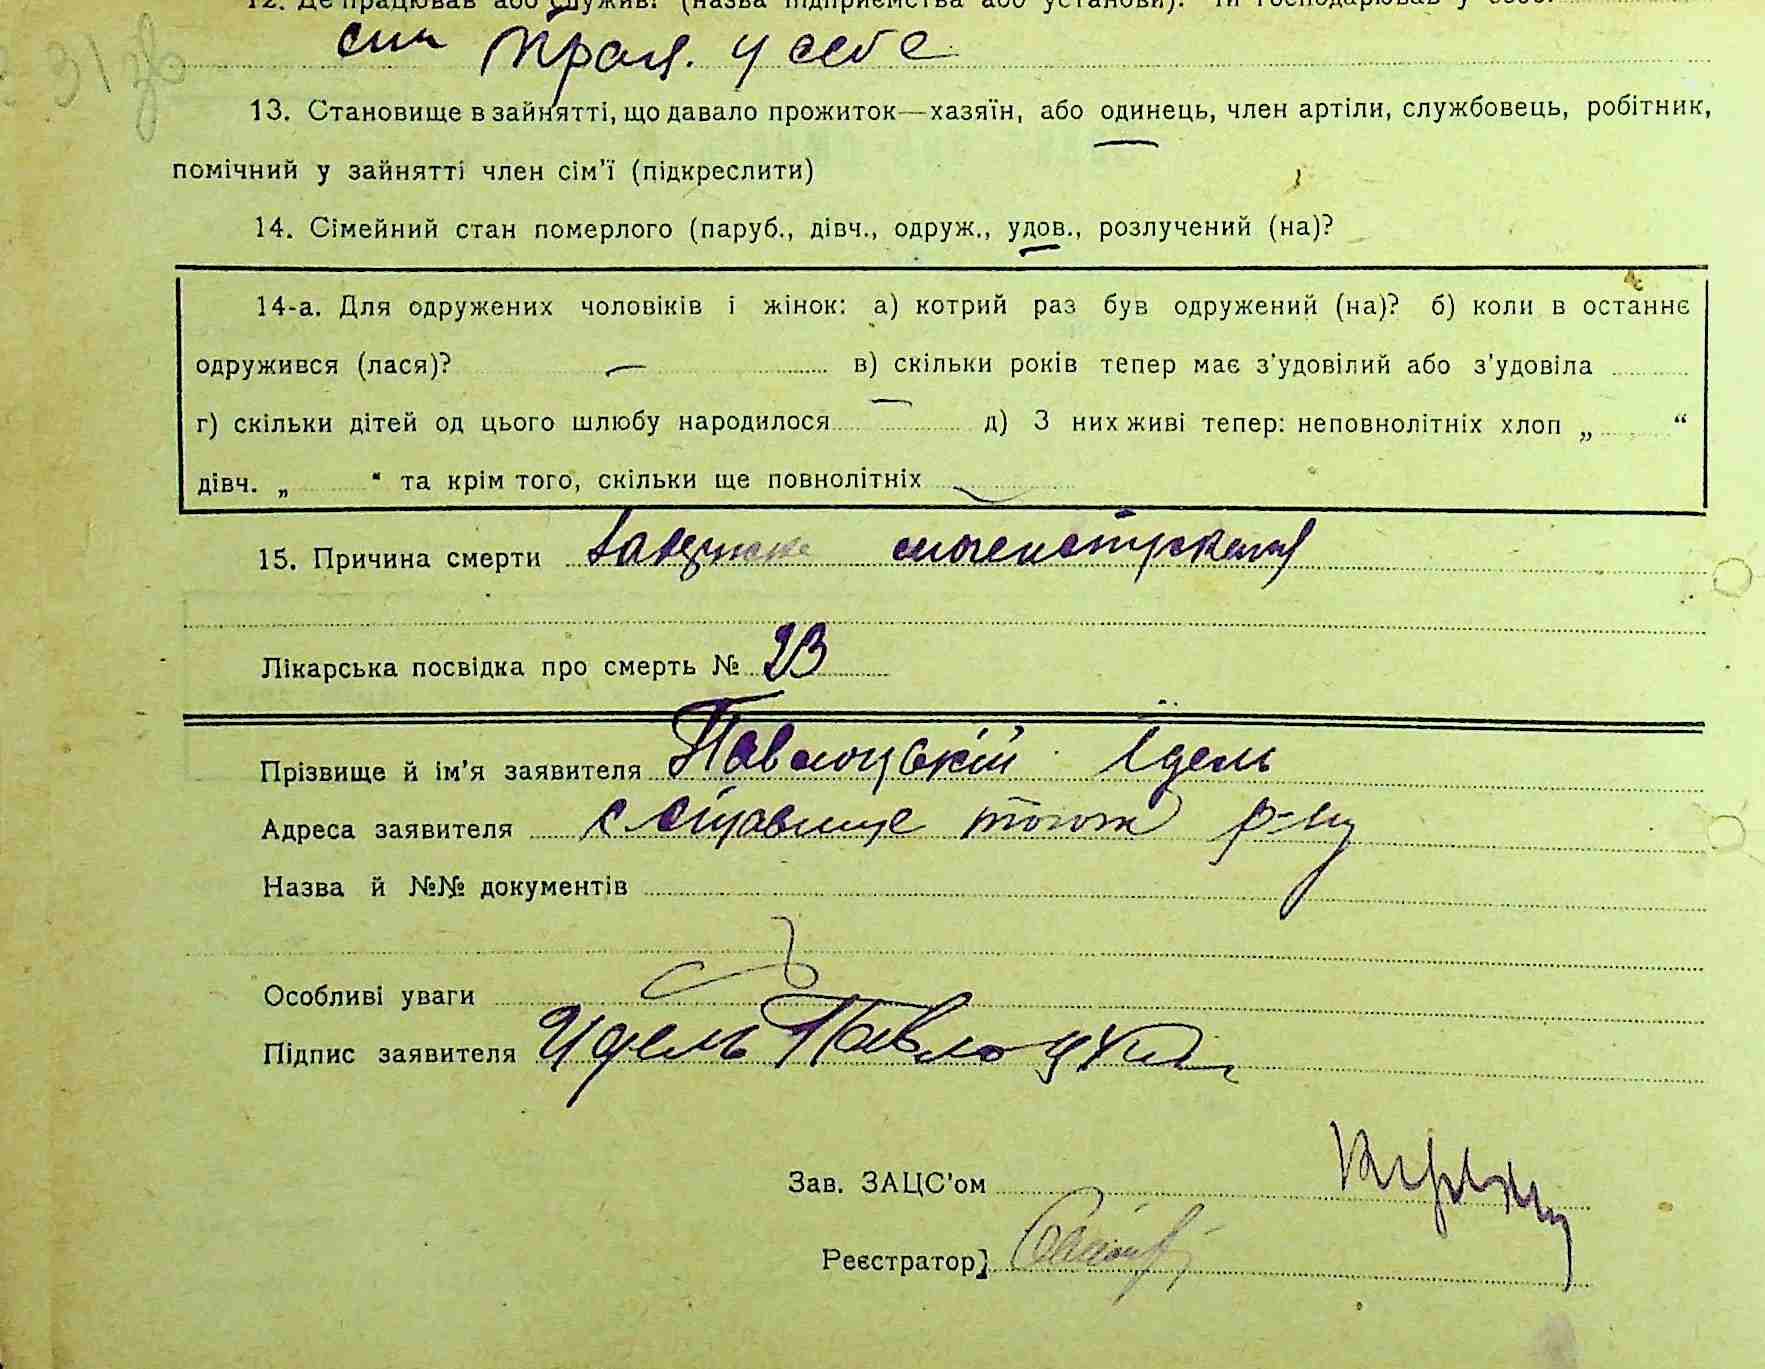 12. Де працював або служив? (назва підприємства або установи). Чи господарював у себе.
син прац. у себе
13. Становище в зайнятті, що давало прожиток—хазяїн, або одинець, член артіли, службовець, робітник,
помічний у зайнятті член сім'ї (підкреслити)
14. Сімейний стан померлого (паруб., дівч., одруж., удов., розлучений (на)?
14-а. Для одружених чоловіків і жінок: а) котрий раз був одружений (на)? б) коли в останнє
одружився (лася)? в) скільки років тепер має з'удовілий або з'удовіла
г) скільки дітей од цього шлюбу народилося д) З них живі тепер: неповнолітніх хлоп „ “
дівч. „ “ та крім того, скільки ще повнолітніх
15. Причина смерти
Лікарська посвідка про смерть № 23
Прізвище й ім'я заявителя Павлоцький Їдель
Адреса заявителя с Ставище того ж р-ну
Назва й №№ документів
Особливі уваги
Підпис заявителя Идель Павлоцкий
Зав. ЗАЦС'ом
Реєстратор